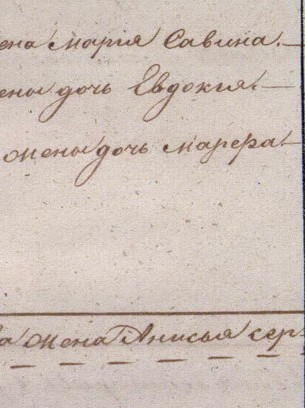 ена Мария Савина.
ены дочь Евдокия.
жены дочь Марфа.
а жена Анисья сер